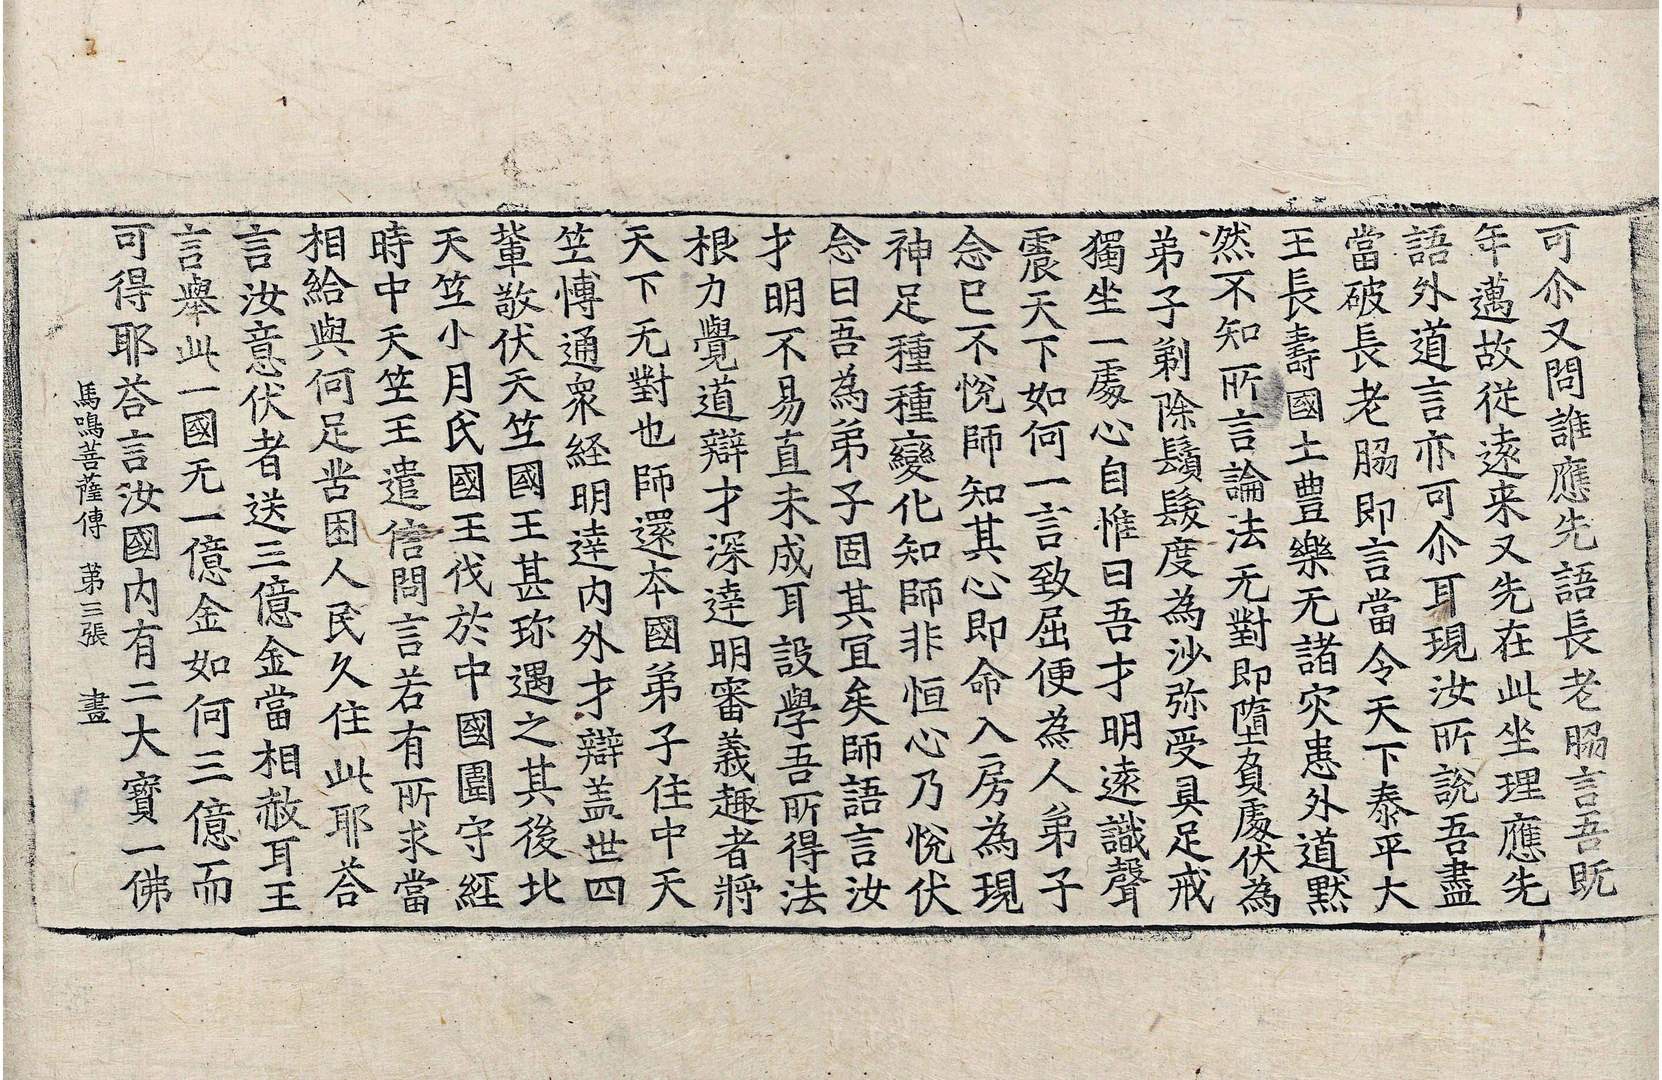 可尒又問誰應先語長老脇言吾既
年邁故從遠来又先在此坐理應先
語外道言亦可尒耳現汝所說吾盡
當破長老脇即言當令天下泰平大
王長壽國土豊樂无諸灾患外道黙
然不知所言論法无對即墮負處伏為
弟子剃除鬚髮度為沙弥受具足戒
獨坐一處心自惟曰吾才明遠識聲
震天下如何一言致屈便為人弟子
念已不悅師知其心即命入房為現
神足種種變化知師非恒心乃悅伏
念曰吾為弟子固其冝矣師語言汝
才明不易直未成耳設學吾所得法
根力覺道辯才深達明審義趣者將
天下无對也師還本國弟子住中天
笁愽通衆経明達内外才辯盖世四
軰敬伏天笁國王甚珎遇之其後北
天笁小月氏國王伐於中國圍守経
時中天笁王遣信問言若有所求當
相給與何足苦困人民久住此耶荅
言汝意伏者送三億金當相赦耳王
言舉此一國无一億金如何三億而
可得耶荅言汝國内有二大寳一佛
馬鳴菩薩傳 第三張 盡